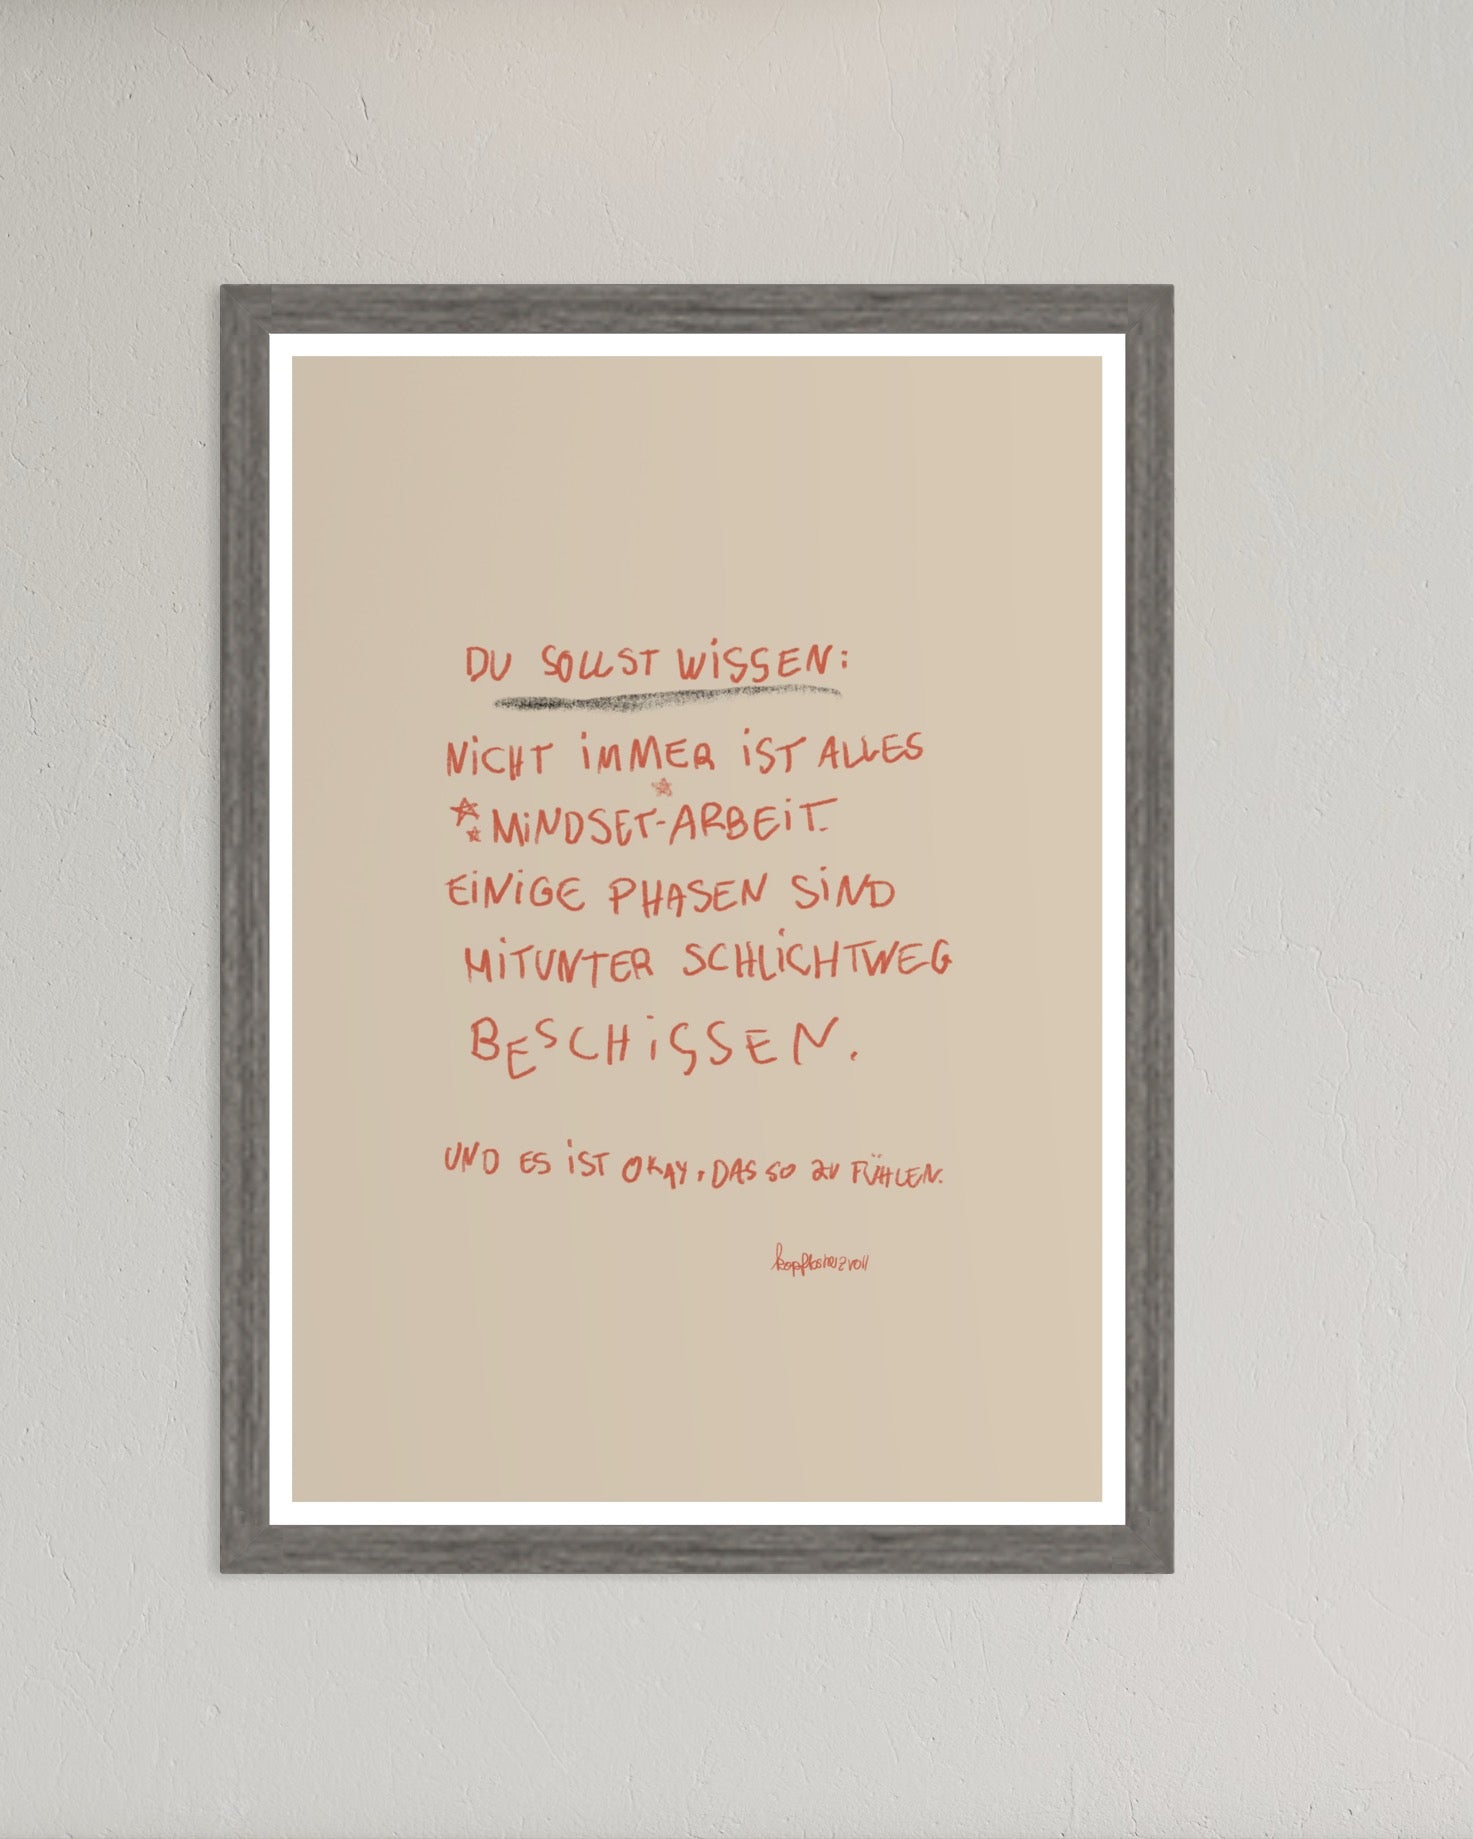 DU SOLLST WISSEN:
NICHT IMMER IST ALLES
MINDSET-ARBEIT.
EINIGE PHASEN SIND
MITUNTER SCHLICHTWEG
BESCHISSEN.
UND ES IST OKAY, DAS SO ZU FÜHLEN.
kopflosherzvoll